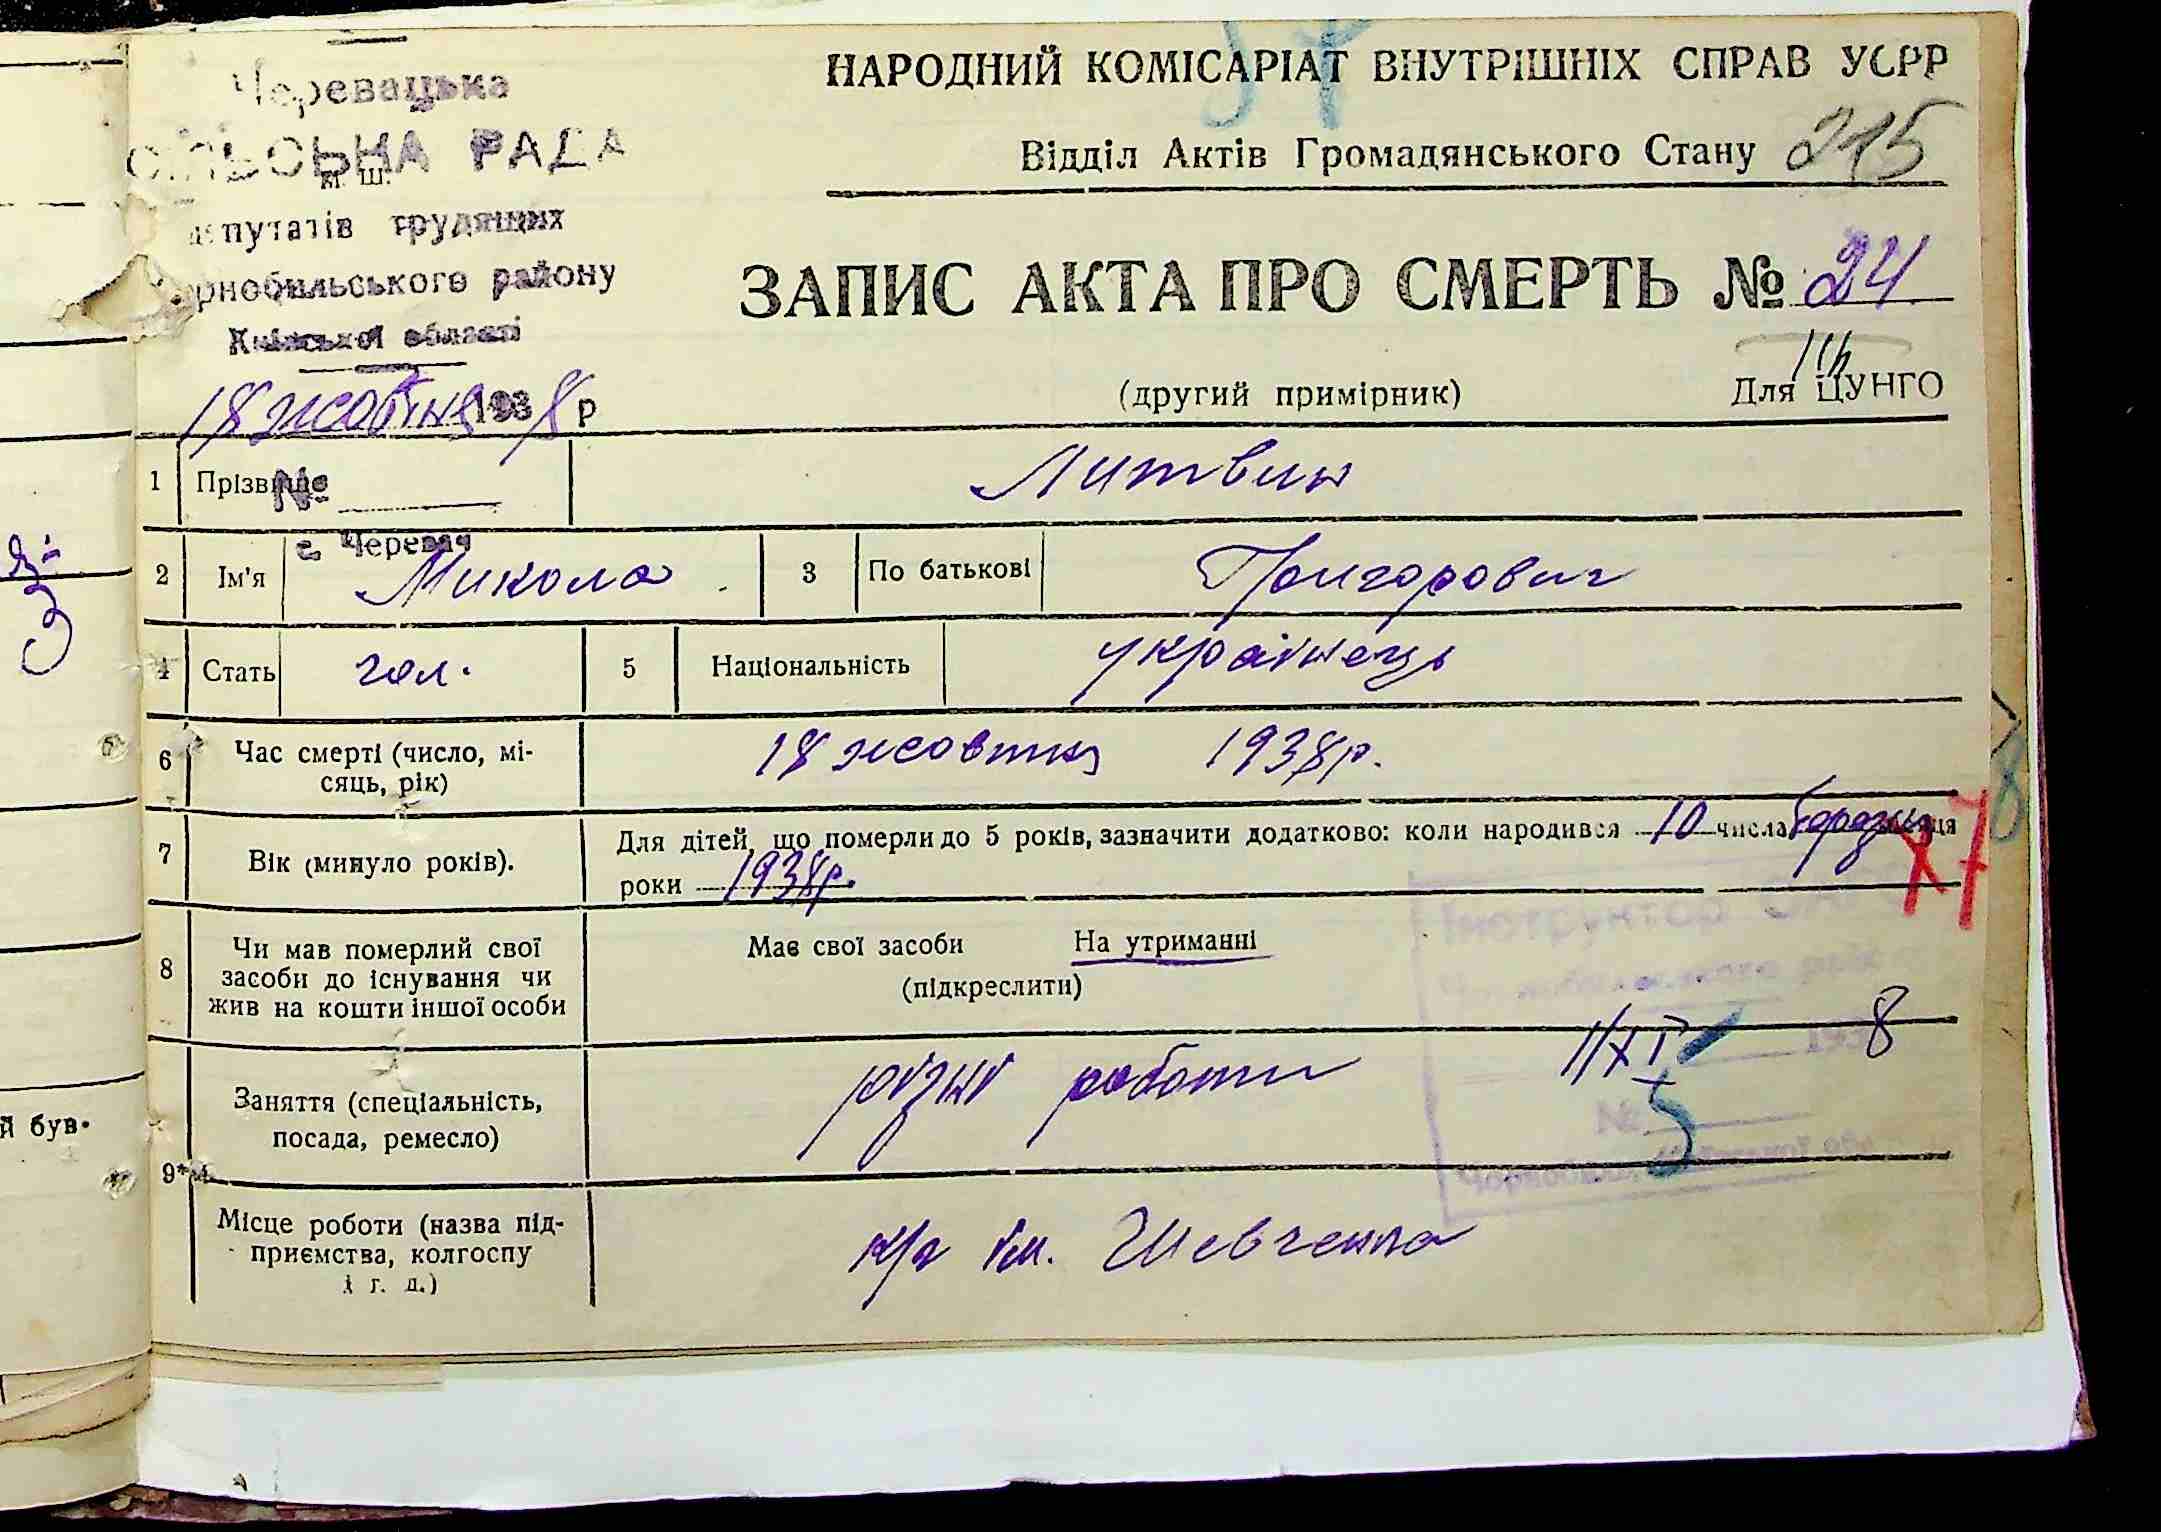 Черевацька
СІЛЬСЬКА РАДА
М. Ш.
депутатів трудящих
Чорнобильського району
Київської області
18 жовтня 1938 р
№
с. Черевач
НАРОДНИЙ КОМІСАРІАТ ВНУТРІШНІХ СПРАВ УСРР
Відділ Актів Громадянського Стану 215
ЗАПИС АКТА ПРО СМЕРТЬ № 24
(другий примірник) Для ЦУНГО
1 Прізвище Литвин
2 Ім'я Микола 3 По батькові Григорович
4 Стать чол. 5 Національність українець
6 Час смерті (число, мі-
сяць, рік) 18 жовтня 1938р.
7 Вік (минуло років). Для дітей, що померли до 5 років, зазначити додатково: коли народився 10 числа березня місяця
роки 1938р.
X 7
8 Чи мав померлий свої
засоби до існування чи
жив на кошти іншої особи
Має свої засоби На утриманні
(підкреслити)
9* Заняття (спеціальність,
посада, ремесло) різні роботи
Місце роботи (назва під-
приємства, колгоспу
і т. д.) к/г ім. Шевченка
Інструктор
193 8
№
5
й був-